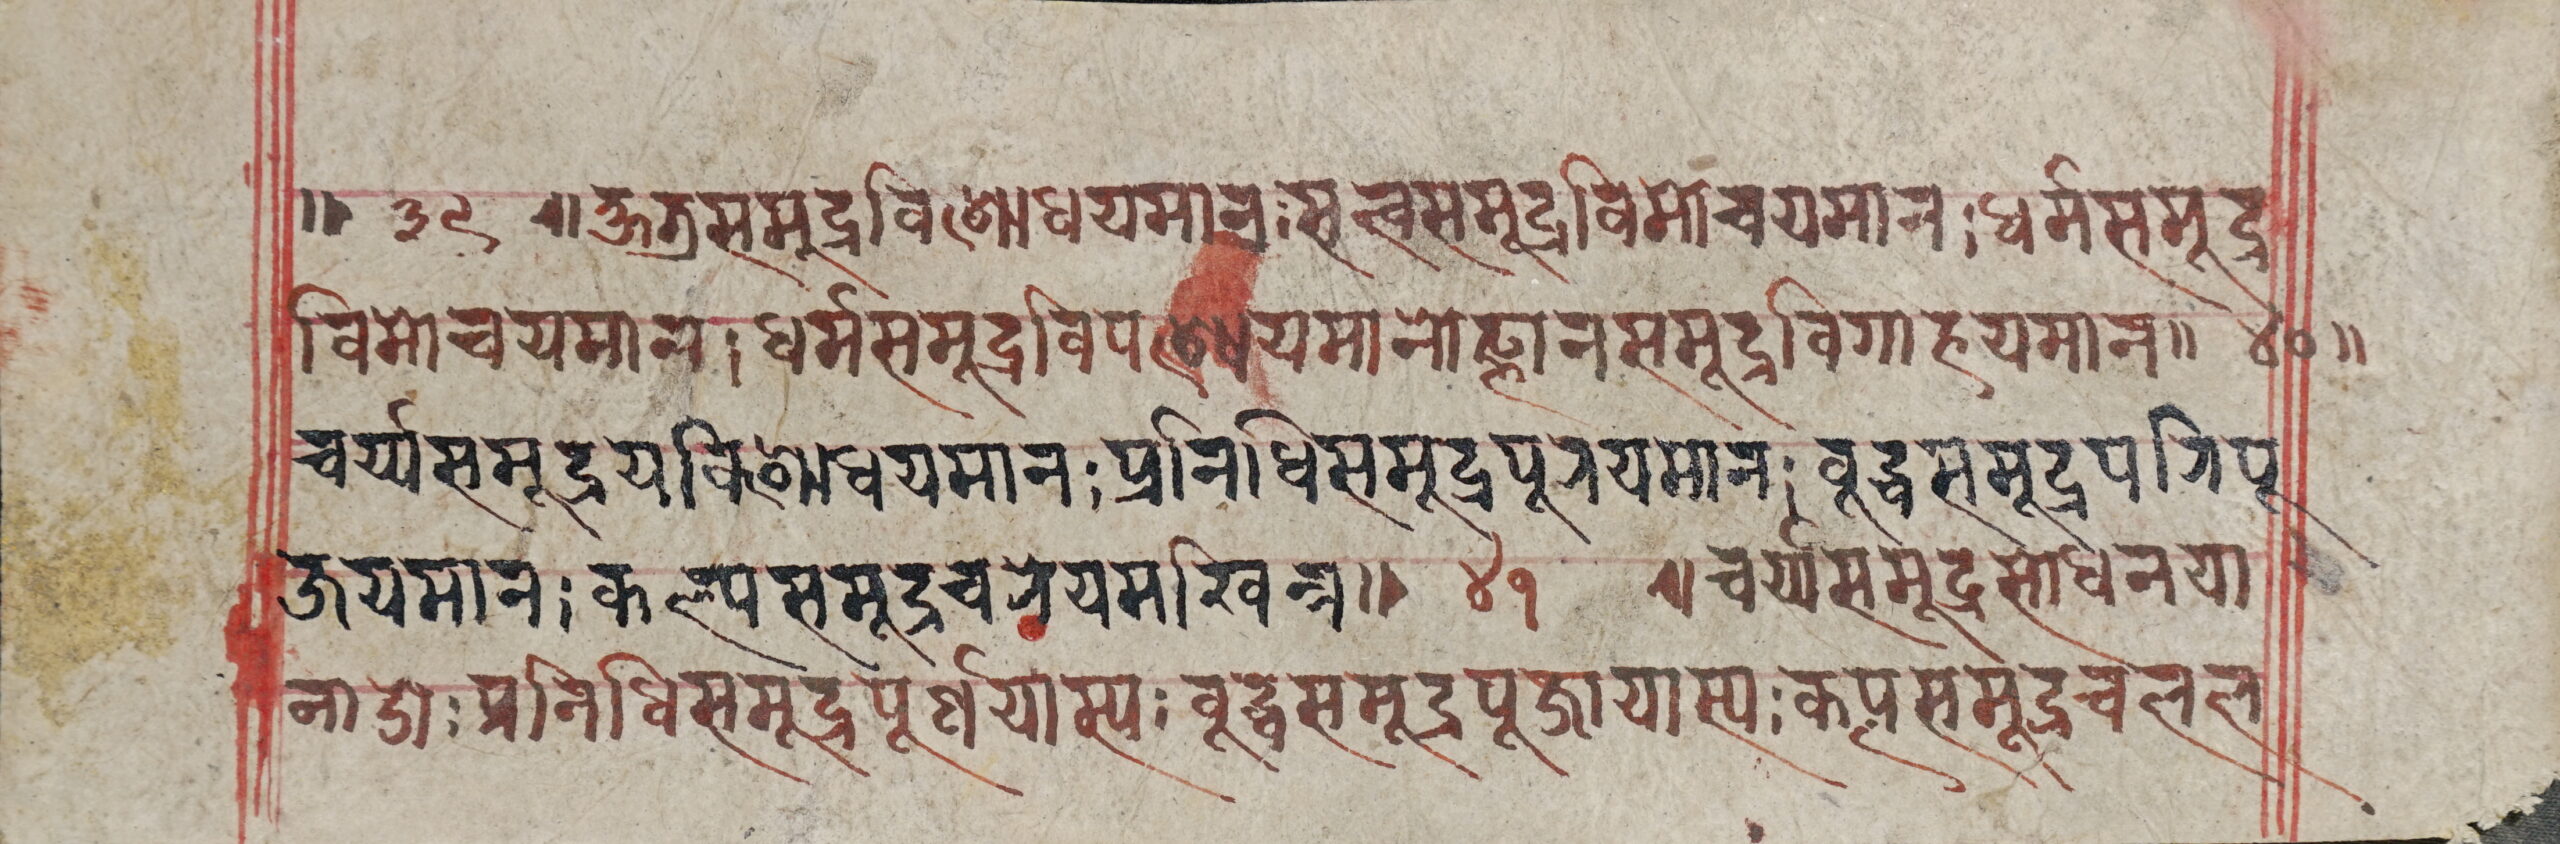 ॥ ३९ ॥ क्षत्रसमुद्रविशोधयमान;सत्वसमूद्रविमोचयमान;धर्मसमूद्र
विमोचयमान;धर्मसमूद्रविपश्ययमानोज्ञानसमूद्रविगाहयमान॥ ४०॥
चर्य्यसमूद्रयविशोधयमान;प्रनिधिसमूद्रपूरयमान;बूद्धसमूद्रपरिपू
जयमान;कल्पसमूद्रचरेयमखिन्न॥ ४१ ॥चर्य्यासमूद्रसोधनया
नादो;प्रनिधिसमूद्रपूर्णयास्य;बूद्धसमूद्रपूजायास्य;कपृसमूद्रचलल